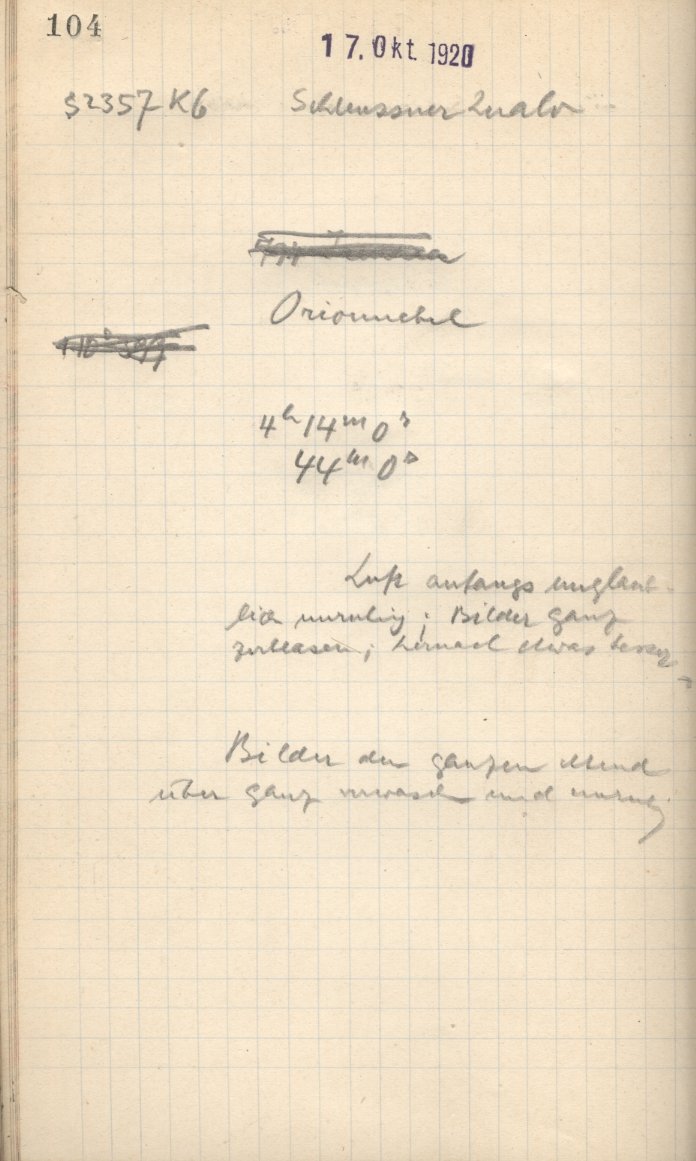 104
17. Okt. 1920
S2357 K6 Schleussner Viridin
Orionnebel
4h 14m 0s
44m 0s
Luft anfangs unglaub-
lich unruhig; Bilder ganz
zerblasen; hernach etwas besser
Bilder den ganzen Abend
über ganz verwaschen und unruhig